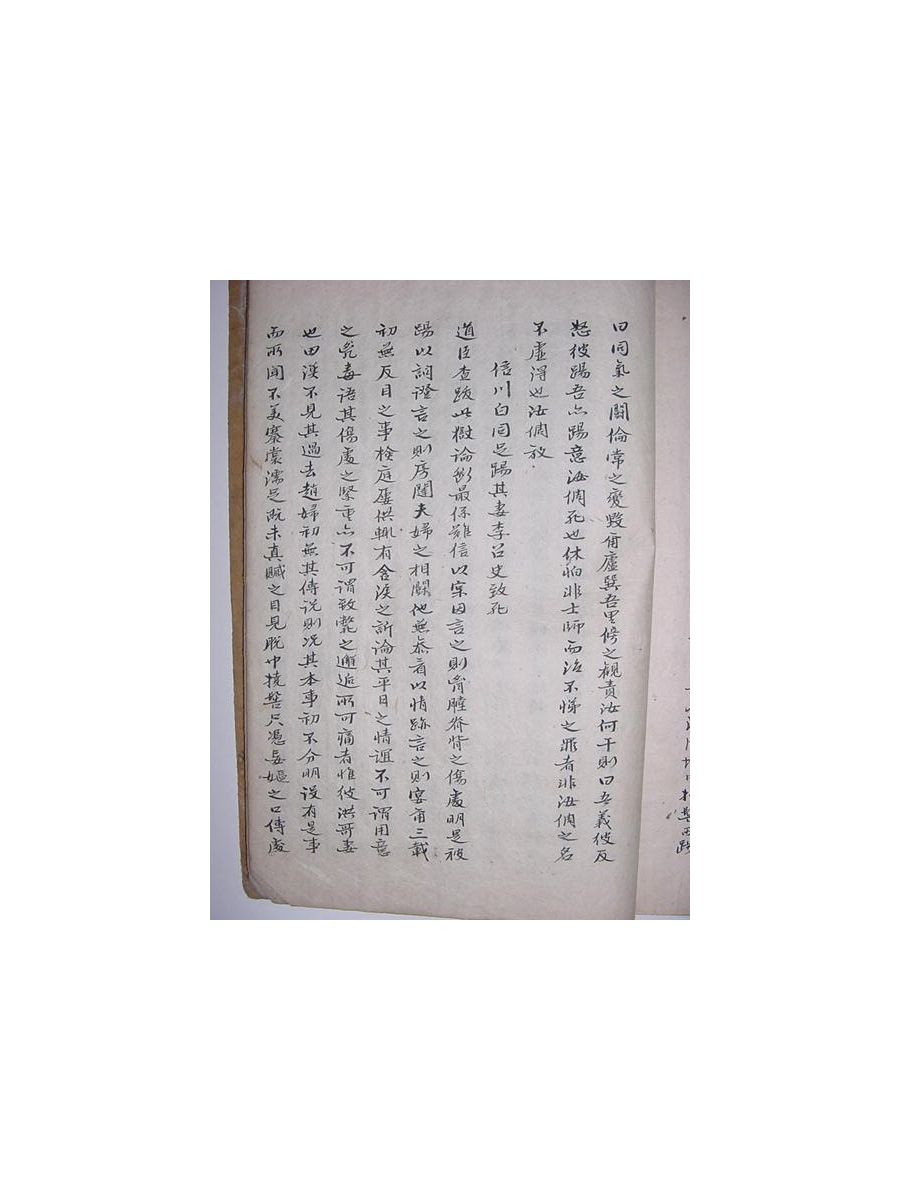 曰同氣之鬪倫常之變毁甭虛㢲吾里傍之觀責汝何干則曰吾義彼反
怒彼踢吾亦踢意汝倜死也休怕非士師而治不悌之罪者非汝倜之名
不虛得也汝倜放
信川白同足踢其妻李召史致死
道臣查跋此獄論斷最係難信以案因言之則胷膛脊背之傷處明是被
踢以詞證言之則房闥夫婦之相鬪他無叅看以情跡言之則窂甭三載
初無反目之事檢庭屢供輒有含淚之訴論其平日之情誼不可謂用意
之兇毒語其傷處之緊重亦不可謂致斃之邂逅所可痛者惟彼洪哥妻
也田漢不見其過去趙婦初無其傳說則况其本事初不分明設有是事
而所聞不美褰裳濡足旣未真贓之目見脫巾挽髻只憑長嫗之口傳處